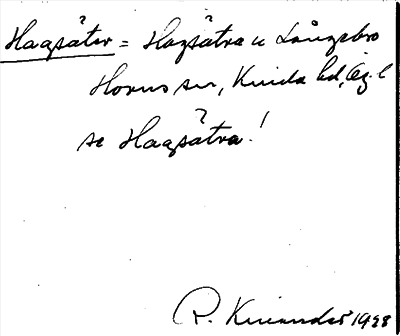 Hagsäter = Hagsätra u Långsbro
Horns sn, Kinda hd, Ög. l
?
se Hagsätra!
R. 1928